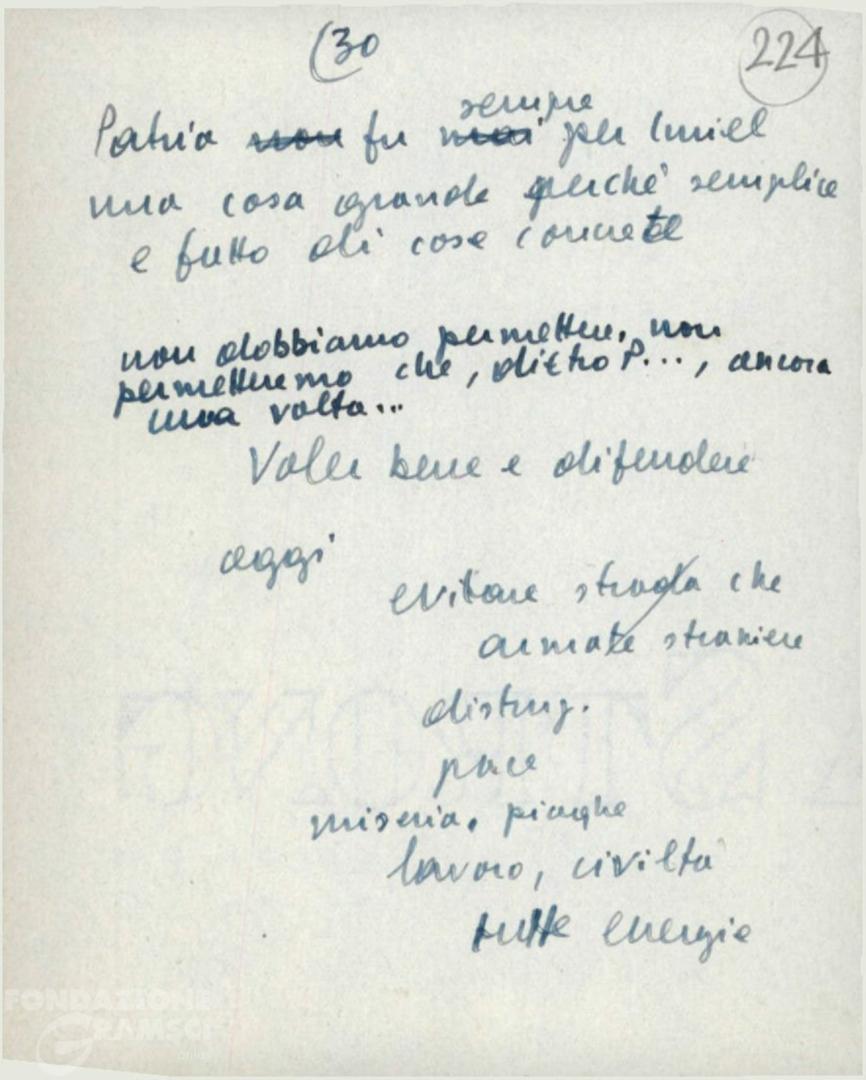 (30
224
sempre
Patria non fu mai per Curiel
una cosa grande perché semplice
e fatto di cose concrete
non dobbiamo permettere, non
permetteremo che, dietro P..., ancora
una volta...
Voler bene e difendere
oggi
evitare strada che
armate straniere
distrug.
pace
miseria, piaghe
lavoro, civiltà
tutte energie
STRONG
FONDAZIONE
GRAMSCI